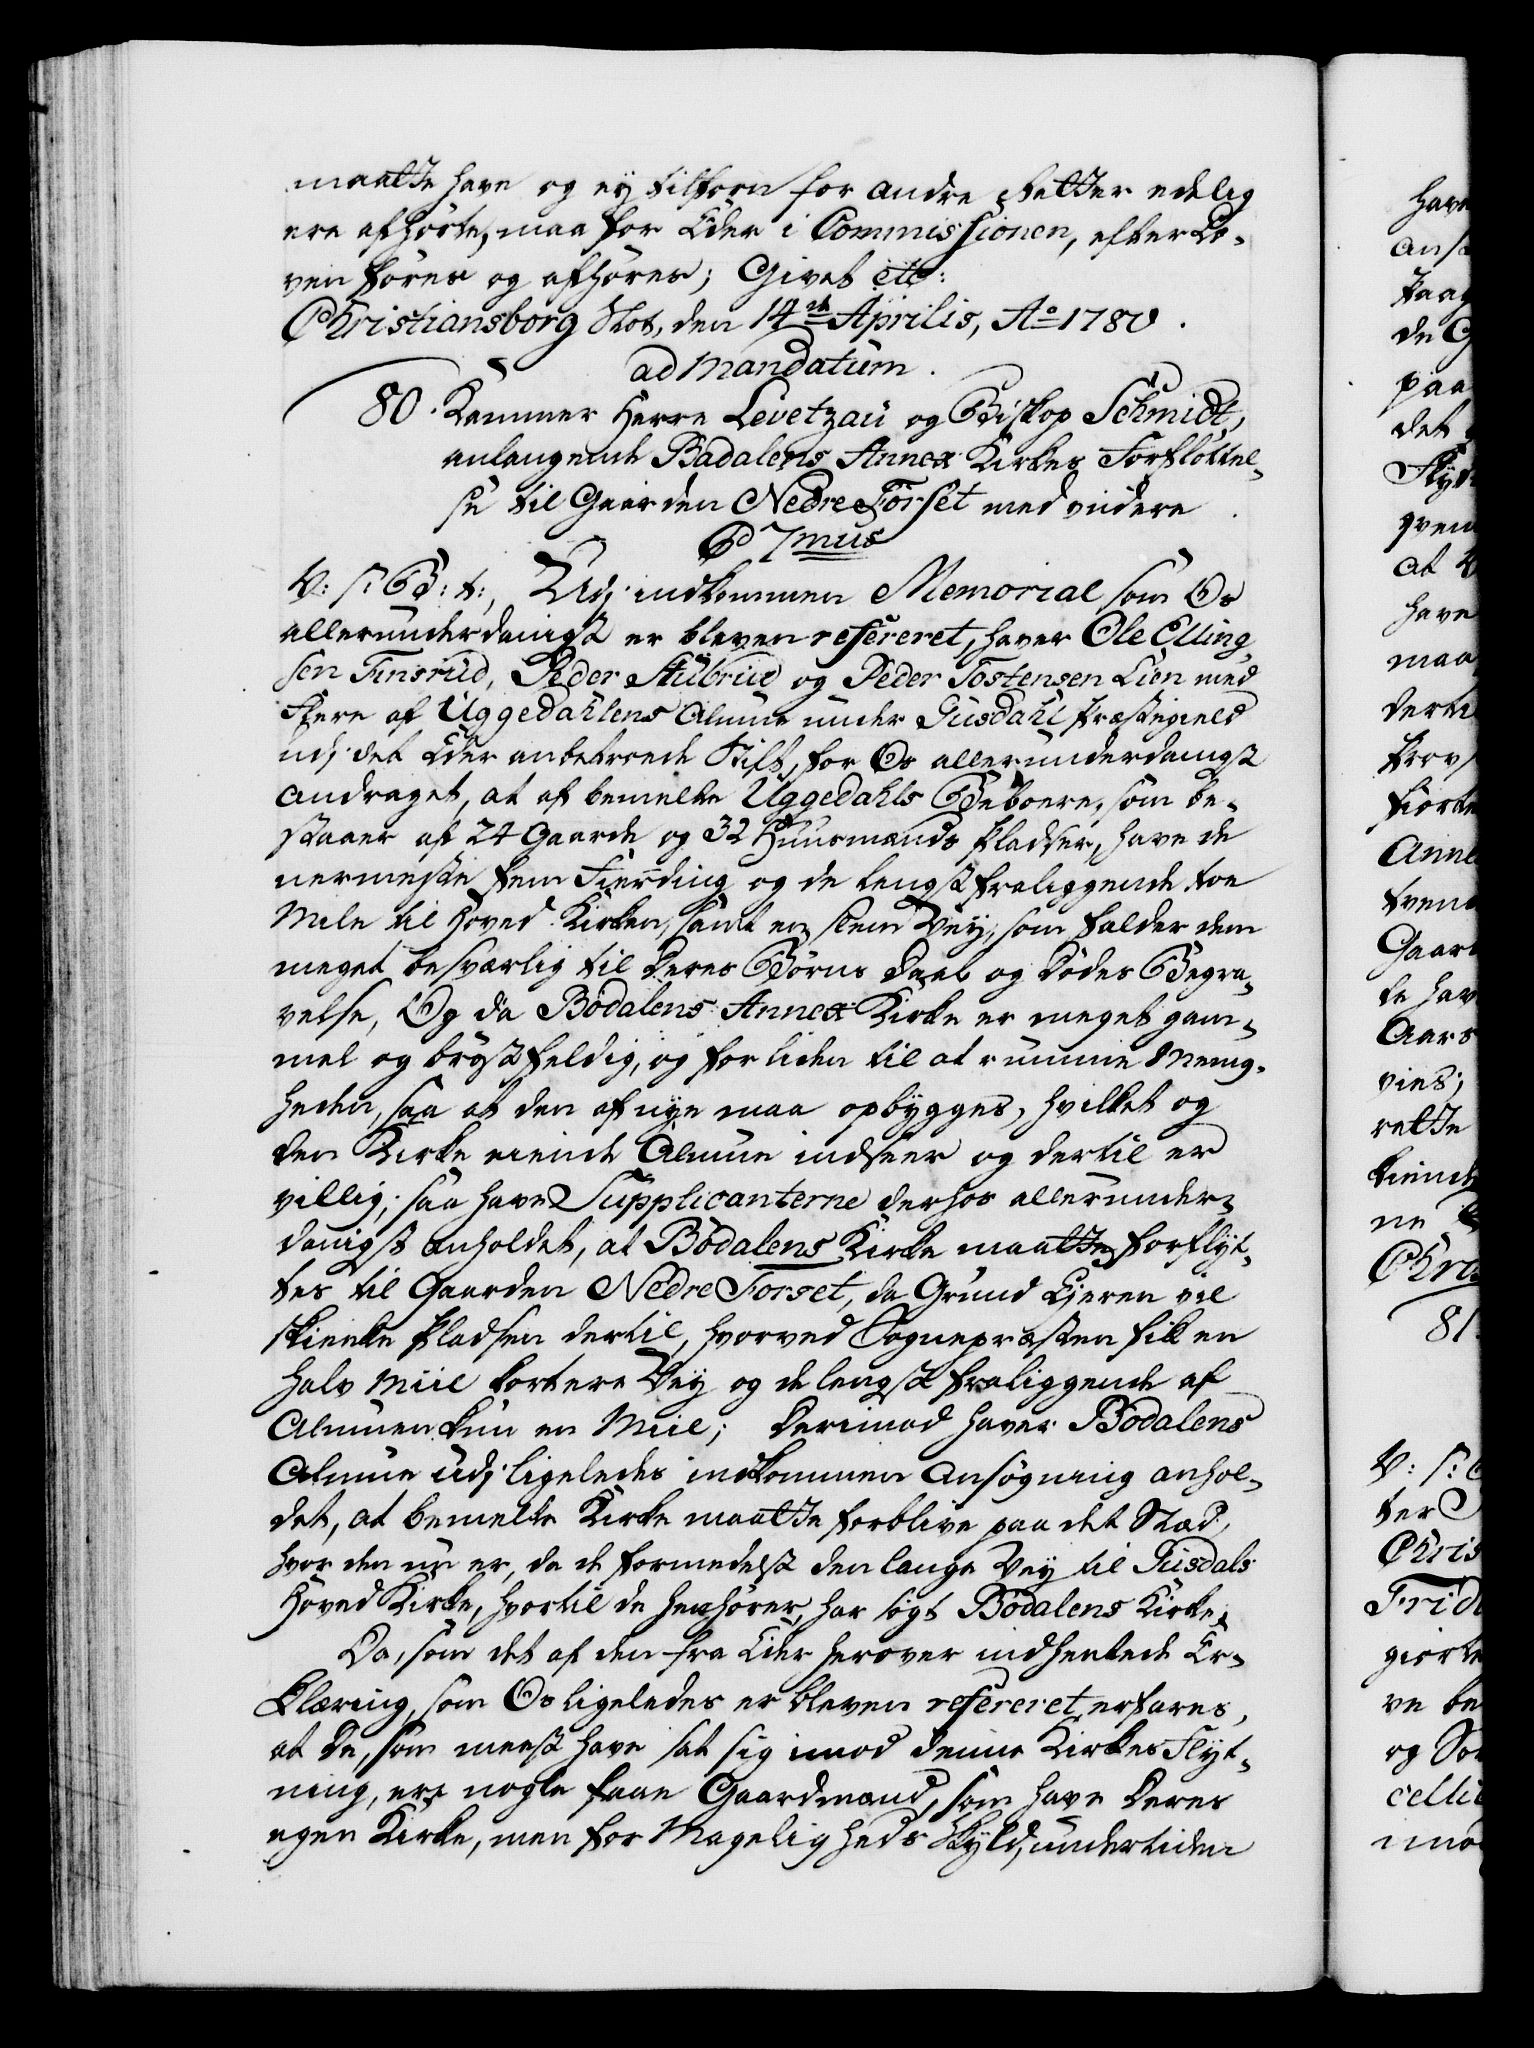 maatte have og ey tilforn for andre Retter edelig
ere afhørte, maa for Eder i Commissionen, efter Lo-
ven føres og afhøres; Givet etc:
Christiansborg Slot, den 14de Aprilis, Ao 1780.
ad mandatum.
80. Kammer Herre Levetzau og Biskop Schmidt,
anlangende Bødalens Annex Kirkes Forflöttel-
se til Gaarden Nedre Forset med videre.
C 7mus
V: s: G: t:, Udj indkommen Memorial som Os
allerunderdanigst er bleven refereret, haver Ole Elling-
sen Finsrud, Peder Stubrud og Peder Tostensen Lien med
Flere af Uggedahlens Almue under Gusdahl Præstegield
udj det Eder anbetroede Stift, for Os allerunderdanigst
andraget, at af bemelte Uggedahls Beboere, som be-
staaer af 24 Gaarde og 32 Huusmands Pladser, have de
nermeste fem Fierding og de lengst fraliggende toe
Mile til Hoved Kirken, samt en slem Vey, som falder dem
meget besværlig til deres Børns Daab og Dødes Begra-
velse, Og da Bödalens Annex Kirke er meget gam-
mel og brøstfeldig, og for liden til at rumme Menig-
heden, saa at den af nye maa opbygges, hvilket og
den Kirke eiende Almue indseer og dertil er
villig; saa have Supplicanterne derhos allerunder-
danigst anholdet, at Bödalens Kirke maatte forflyt-
tes til Gaarden Nedre Forset, da Grund Ejeren vil
skienke Pladsen dertil, hvorved Sognepræsten fik en
halv Miil kortere Vey og de lengst fraliggende af
Almuen kun en Miil; Derimod haver Bödalens
Almue udj ligeledes indkommen Ansøgning anhol-
det, at bemelte Kirke maatte forblive paa det Stæd,
hvor den nu er, da de formedelst den lange Vey til Gusdals
Hoved Kirke, hvortil de henhører, har søgt Bödalens Kirke;
Da, som det af den fra Eder herover indhentede Er-
klæring, som Os ligeledes er bleven refereret, erfares,
at de, som meest have sat sig imod denne Kirkes Flyt-
ning, ere nogle faae Gaardmænd, som have deres
egen Kirke, men for Mageligheds Skyld, undertiden